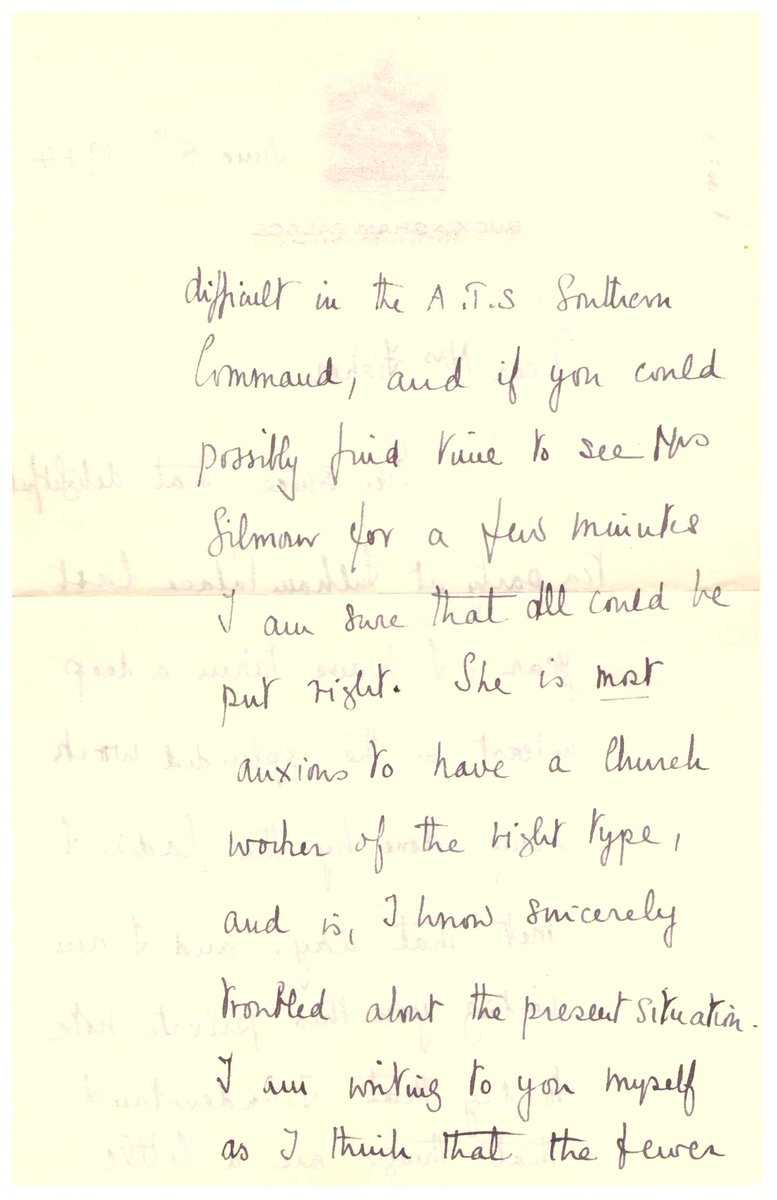 difficult in the A.T.S Southern
Command, and if you could
possibly find time to see Mrs
Gilmour for a few minutes
I am sure that all could be
put right. She is most
anxious to have a Church
worker of the right type,
and is, I know sincerely
troubled about the present situation.
I am writing to you myself
as I think that the fewer